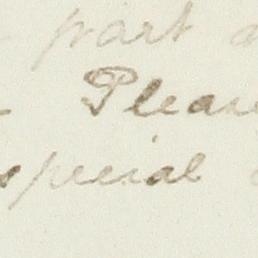 part
Please
special